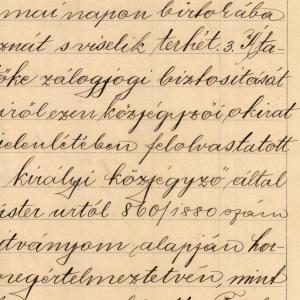 mai napon birtokába
znát s viselik terhét. 3. Ft ta-
őke zálogjogi biztositását
iről ezen közjegyzői okirat
jelenlétében felolvastatott
királyi közjegyző" által
ister urtól 860/1880 szám
itványom alapján hor-
megértelmeztetvén, mint